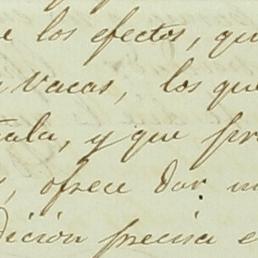 e los efectos, qu
vacas, los que
tala, y que pr
, ofrece dar
dicion precisa e